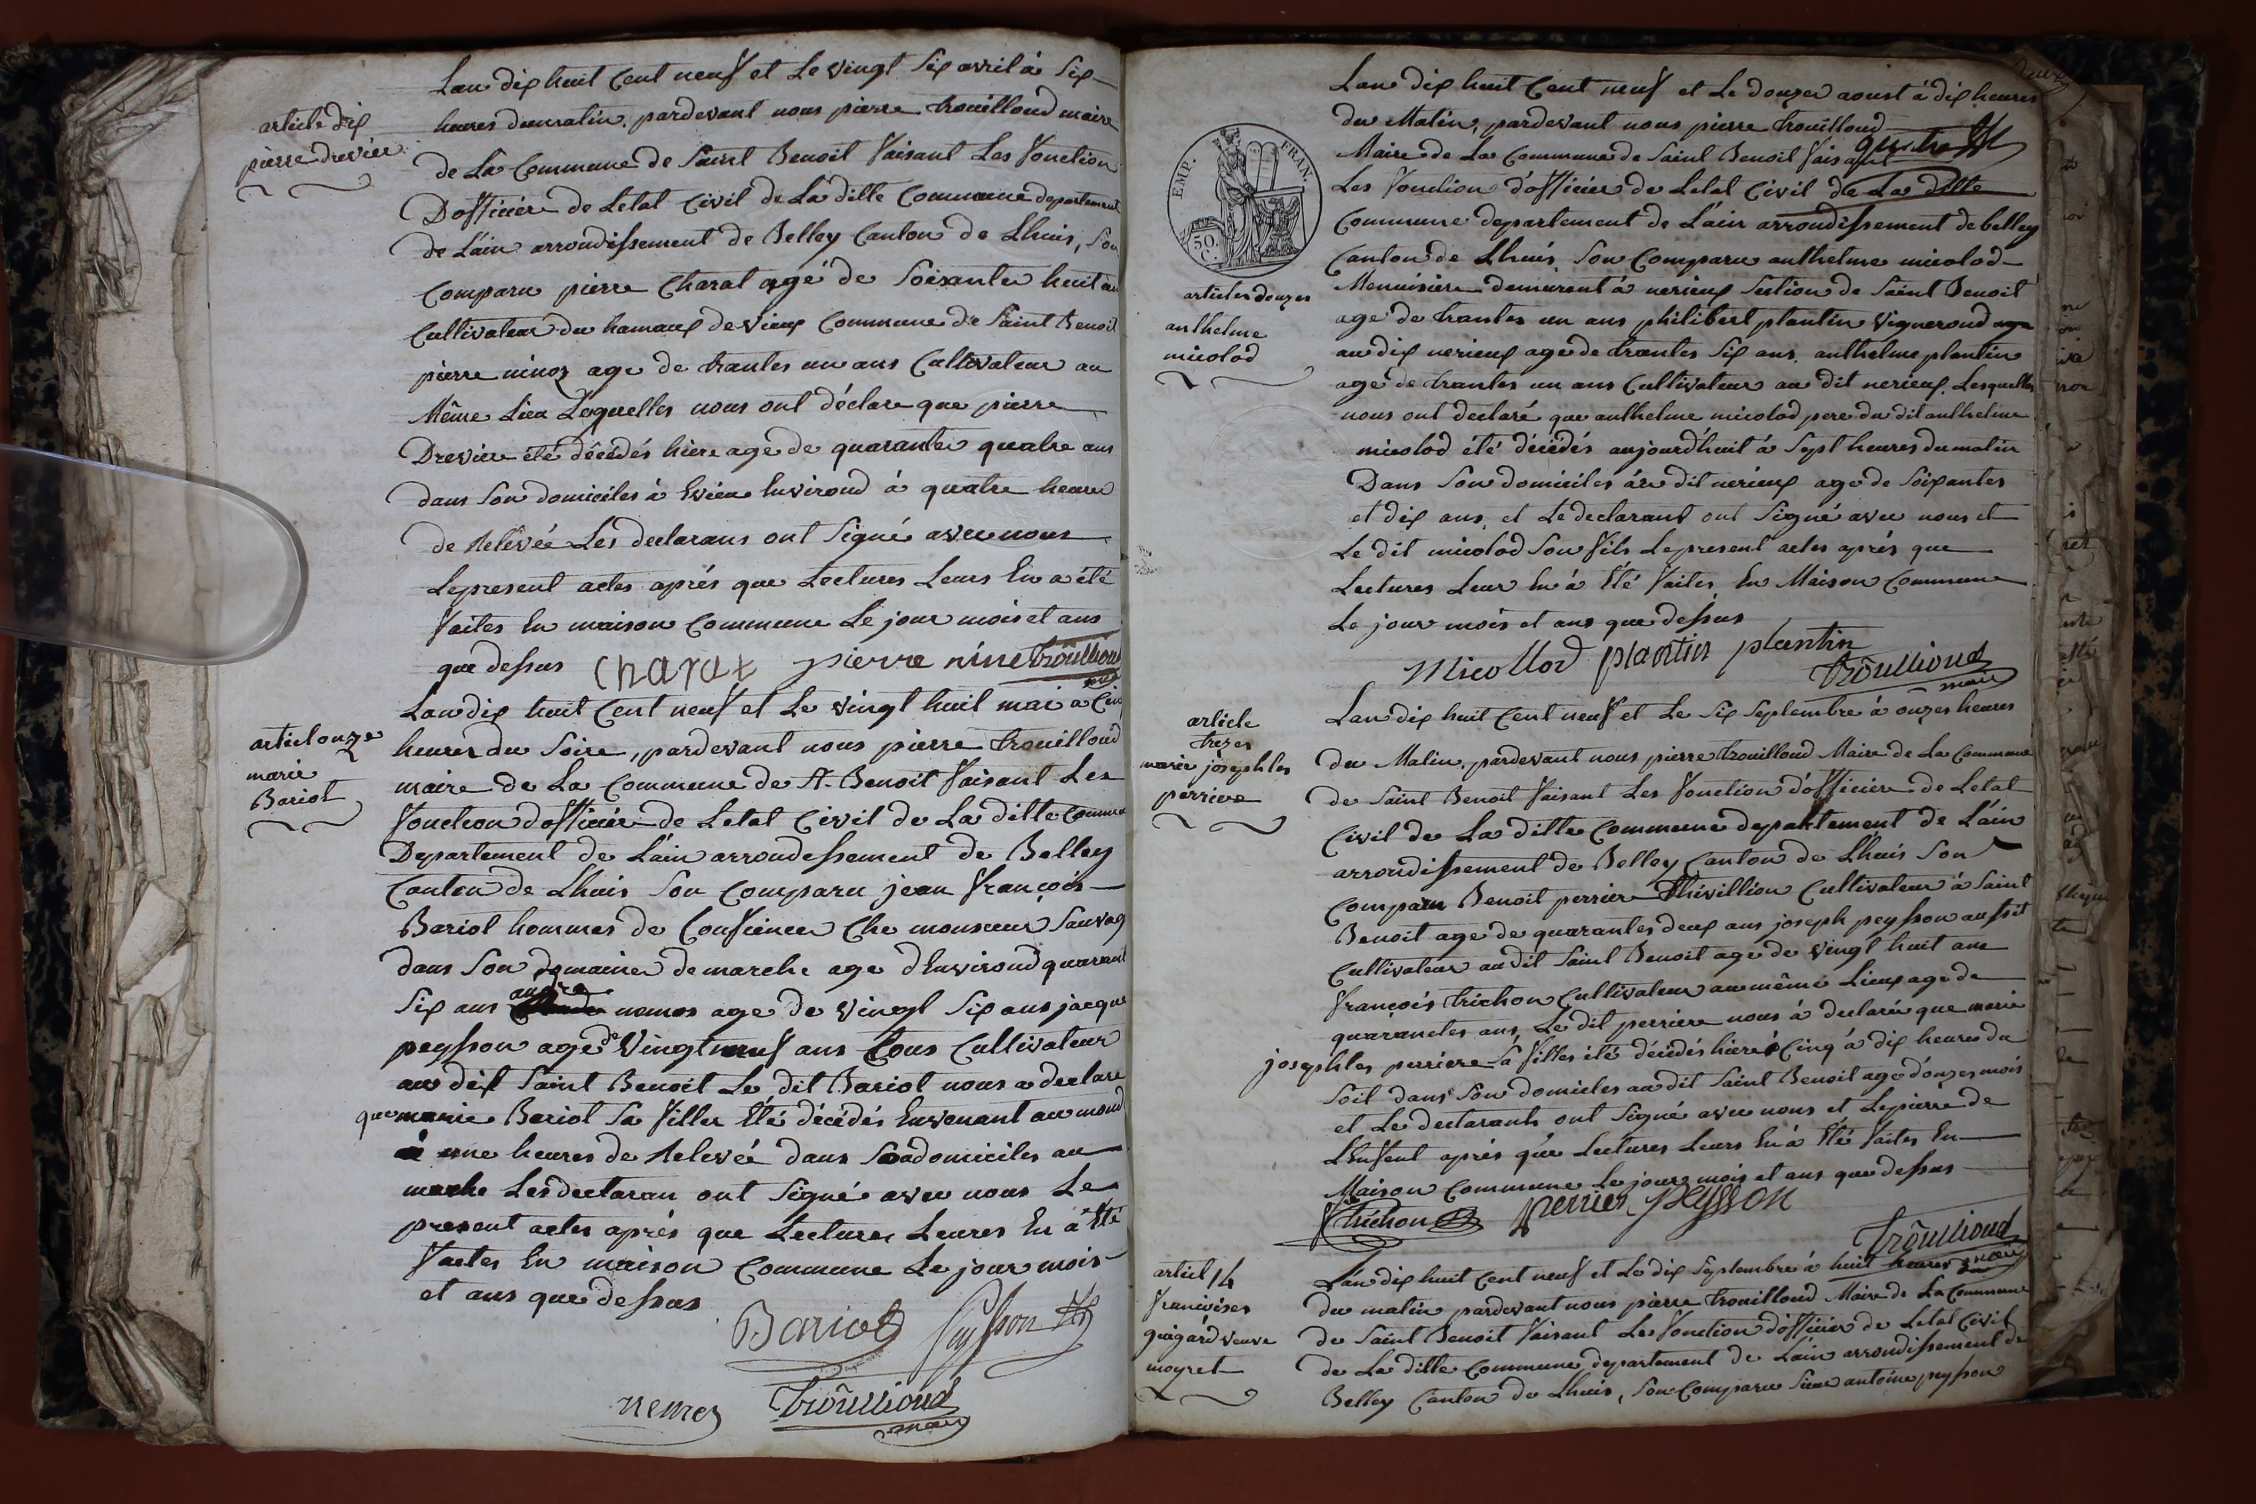 article dix
pierre drevier
Lan dix huit Cent neuf et Le vingt Six avril à Six
heures du matin, pardevant nous pierre trouilloud maire
de La Commune de Saint Benoit faisant Les fonction
Dofficier de Letat Civil de La ditte Commune departement
de Lain arrondissement de Belley Canton de Lhuis, Son
Comparu pierre Charat agé de Soixante huit an
Cultivateur du hamaux de vieux Commune de Saint Benoit
pierre ninoz age de trantes un ans Cultivateur au
Même Lieu Lequelles nous ont déclare que pierre
Drevier été décédés hier age de quarante quatre ans
dans Son domiciles à Evieu Environd à quatre heures
de Relevée Les declarans ont Signé avec nous
Le present actes aprés que Lectures Leurs En a été
faites En maison Commune Le jour mois et ans
que dessus Charat pierre nino trouilloud
maire
articl onze
marie
Bariot
Lan dix huit Cent neuf et Le vingt huit mai a Cinq
heures du Soire, pardevant nous pierre trouilloud
maire de La Commune de St. Benoit faisant Les
fonction dofficier de Letat Civil de La ditte Commune
Departement de Lain arrondessement de Belley
Canton de Lhuis Son Comparu jean françois
Bariot hommes de Confience Che monsieur Sauvag
dans Son domaines de marche age dEnvirond quarant
andre
Six ans nemoz age de vingt Six ans jacque
peysson age de vingt neuf ans tous Cultivateur
au dit Saint Benoit Le dit Bariot nous a declare
que marie Bariot Sa filles Eté décédés En venant au mond
à une heures de Relevée dans Son domiciles au
marche Les declaran ont Signé avec nous Le
present actes aprés que Lectures Leures En a Eté
faites En maison Commune Le jour mois
et ans que dessus
Bariot peysson
nemoz trouilloud
maire
EMP. FRAN.
50.
C.
article douzes
anthelme
micolod
Lan dix huit Cent neuf et Le douzes aoust à dix heures
du Matin, pardevant nous pierre trouilloud
Maire de La Commune de Saint Benoit faisant
Les fonction d'officier de Letat Civil de La ditte
Commune departement de L'ain arrondissement de belley
Canton de Lhuis Son Comparu anthelme micolod
Menuisier demeurent à nerieux Section de Saint Benoit
age de trantes un ans philibert plantin vigneroud age
au dix nerieux age de trantes Six ans anthelme plantin
age de trantes un ans Cultivateur au dit nerieux Lesquelles
nous ont declaré que anthelme micolod pere du dit anthelme
micolod été décédés aujourd'huit à Sept heures du matin
Dans Son domiciles au dit nerieux age de Soixantes
et dix ans, et Le declarant ont Signé avec nous et
Le dit micolod Son fils Le present actes aprés que
Lectures Leur En à Eté faites En Maison Commune
Le jour mois et ans que dessus
Micollod plantin plantin
trouilloud
maire
article
trezes
marie josephles
perriere
Lan dix huit Cent neuf et Le Six Septembre à onzes heures
du Matin, pardevant nous pierre trouilloud Maire de La Commune
de Saint Benoit faisant Les fonction d'officier de Letat
Civil de La ditte Commune departement de L'ain
arrondissement de Belley Canton de Lhuis Son
Comparu Benoit perrier Thévillion Cultivateur à Saint
Benoit age de quarantes deux ans joseph peysson aussit
Cultivateur au dit Saint Benoit age de vingt huit ans
françois trichon Cultivateur au même Lieux age de
quarantes ans, Le dit perriere nous à declarér que marie
josephles perriere Sa filles été décédés hiere Cinq à dix heures du
Soit dans Son domicles au dit Saint Benoit age d'onzes mois
et Le declarants ont Signé avec nous et Le pierre de
LEnfent aprés que Lectures Leurs En à Eté faites En
Maison Commune Le jour mois et ans que dessus
trichon perrier peysson
trouilloud
maire
articl 14
francoises
guigard veuve
moyret
Lan dix huit Cent neuf et Le dix Septembre à huit heures
du matin pardevant nous pierre trouilloud Maire de La Commune
de Saint Benoit faisant Le fonction d'officier de Letat Civil
de La ditte Commune departement de Lain arrondissement de
Belley Canton de Lhuis, Son Comparu Sieur antoine peysson